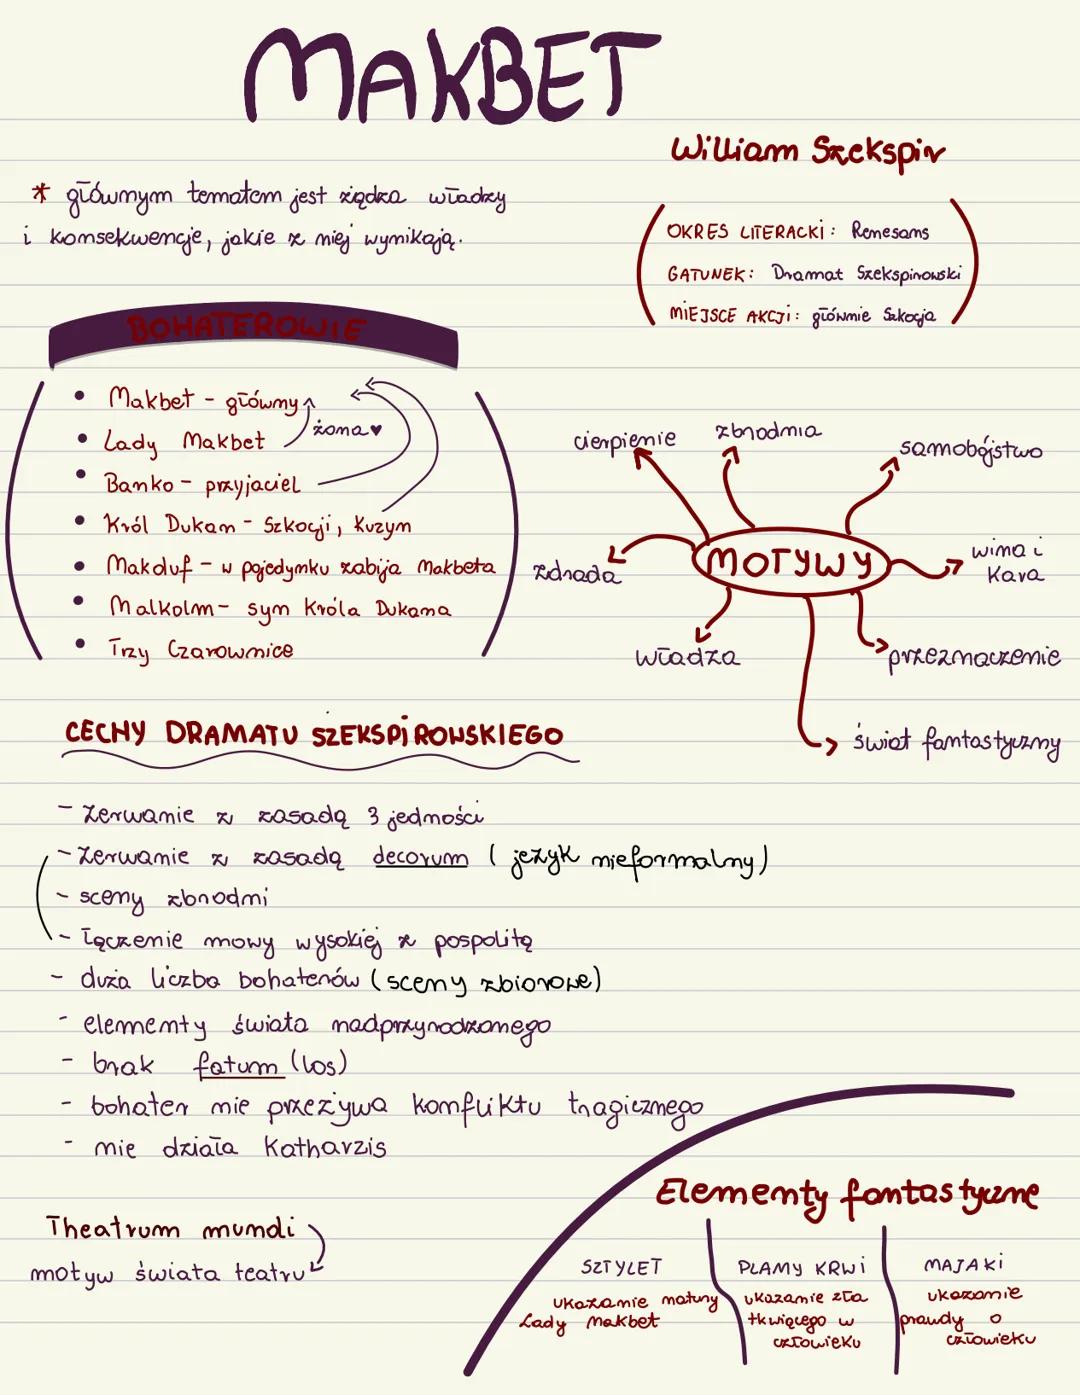 MAKBET
William Szekspir
* głównym tematem jest ządza władzy
i konsekwencje, jakie z niej wynikają.
OKRES LITERACKI: Renesans
GATUNEK: Dramat Szekspirowski
MIEJSCE AKCJI: głównie Szkocja
BOHATEROWIE
• Makbet - główny
• Lady Makbet
żona ♥
• Banko - przyjaciel
• Król Dukan - Szkocji, Kuzyn
• Makduf - w pojedynku zabija Makbeta
• Malkolm - syn Króla Dukana
• Trzy Czarownice
MOTYWY
cierpienie
zbrodnia
samobójstwo
zdrada
wina i
Kara
władza
przeznaczenie
świat fantastyczny
CECHY DRAMATU SZEKSPIROWSKIEGO
- Zerwanie z zasadą 3 jedności
- Zerwanie z zasadą decorum (język nieformalny)
- sceny zbrodni
- łączenie mowy wysokiej z pospolitą
- duża liczba bohaterów (sceny zbiorowe)
- elementy świata nadprzyrodzonego
- brak fatum (los)
- bohater nie przeżywa konfliktu tragicznego
- nie działa Katharzis
Theatrum mundi
motyw świata teatru
Elementy fantastyczne
SZTYLET
ukazanie natury
Lady Makbet
PLAMY KRWI
ukazanie zła
tkwiącego w
człowieku
MAJAKI
ukazanie
prawdy o
człowieku